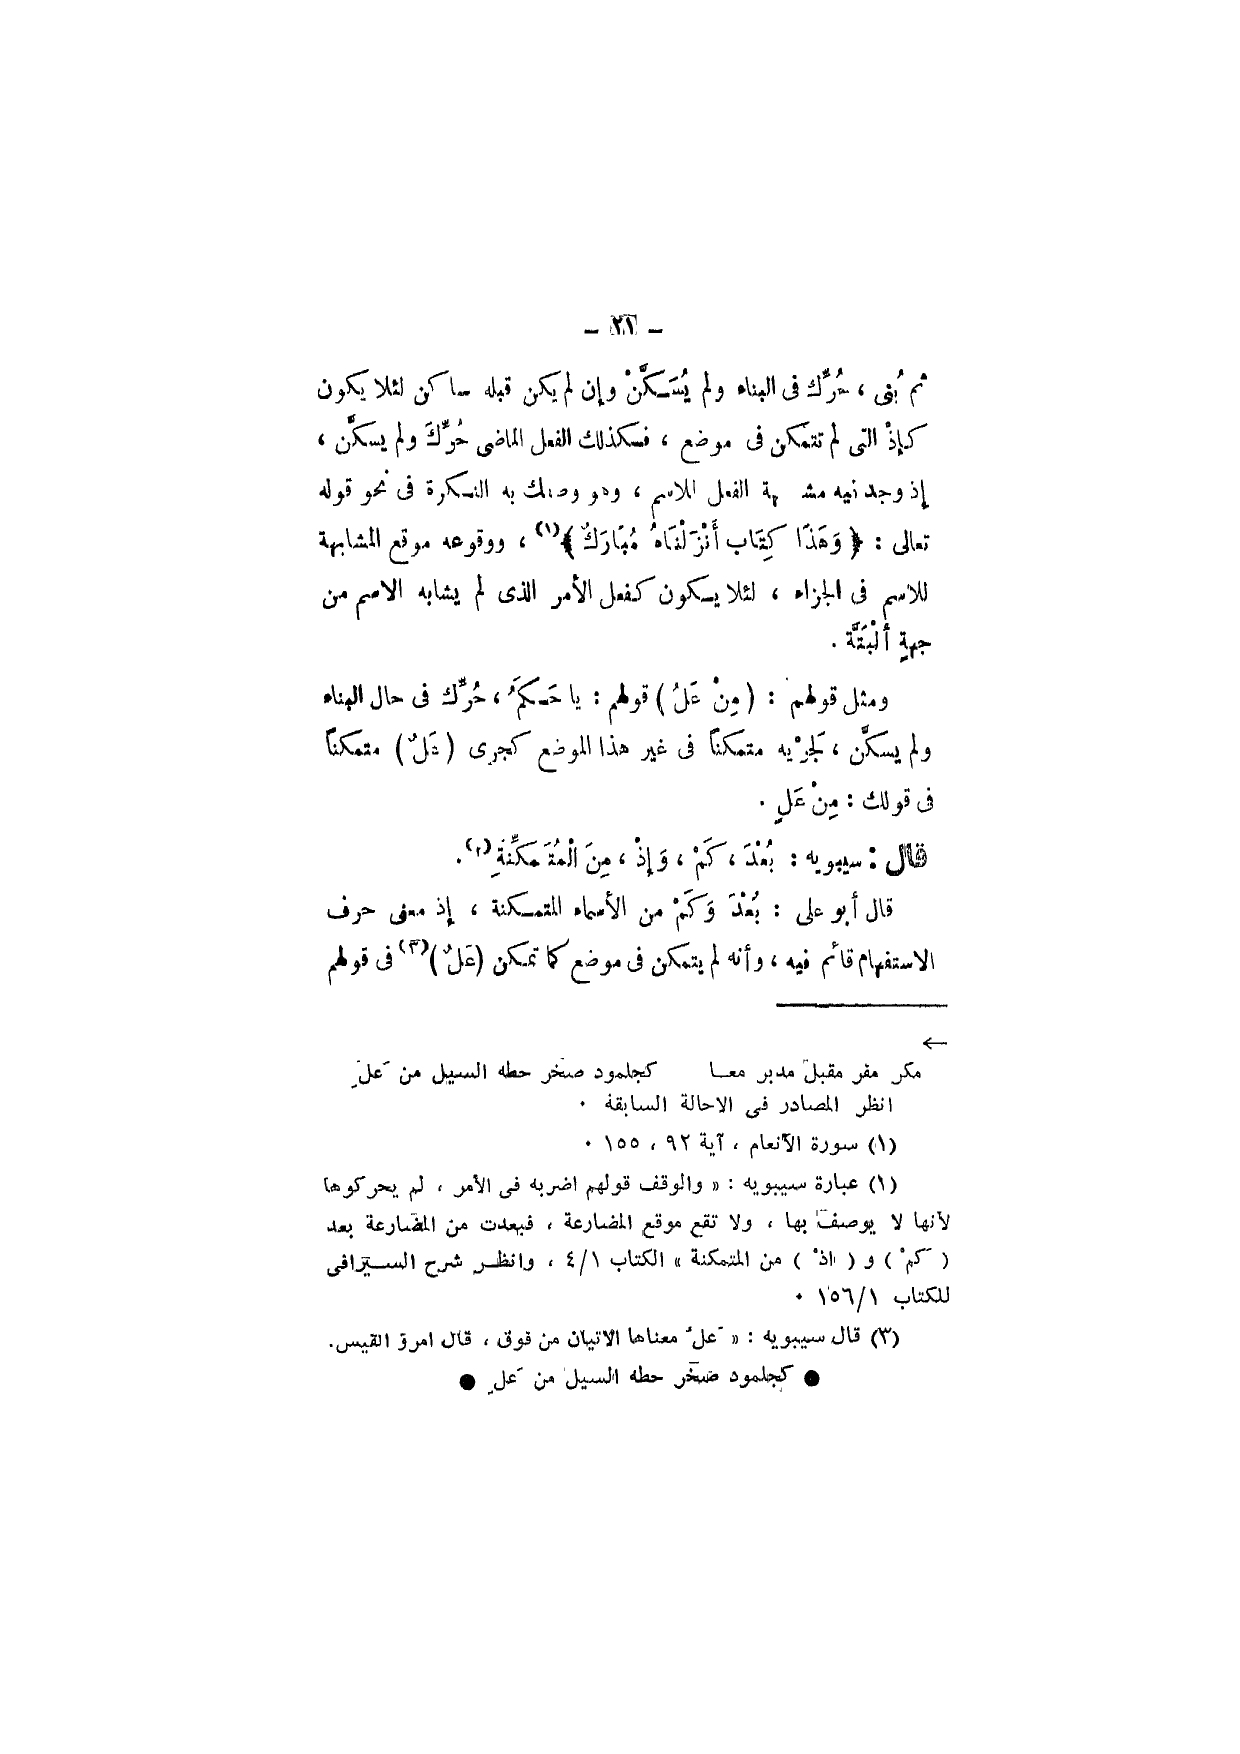 – ٢١ –
ثم بُنى ، حُرِّك فى البناء ولم يُسَكَّنْ وإن لم يكن قبله ساكن لئلا يكون
كإذْ التى لم تتمكن فى موضع ، فكذلك الفعل الماضى حُرِّكَ ولم يسكَّن ،
إذ وجد فيه مشابهة الفعل للاسم ، وهو وصلك به النكرة فى نحو قوله
تعالى : ﴿ وَهَذَا كِتَاب أَنْزَلْنَاهُ مُبَارَكٌ ﴾(١) ، ووقوعه موقع المشابهة
للاسم فى الجزاء ، لئلا يكون كفعل الأمر الذى لم يشابه الاسم من
جهةٍ ألْبَتَّة .
ومثل قولهم : ( مِنْ عَلُ ) قولهم : يا حَكَمُ ، حُرِّك فى حال البناء
ولم يسكَّن ، لجَرْيه متمكناً فى غير هذا الموضع كجرى ( عَلٌ ) متمكناً
فى قولك : مِنْ عَلٍ .
قال : سيبويه : بُعْدَ ، كَمْ ، وَإِذْ ، مِنَ الْمُتَمَكِّنَةِ(٢).
قال أبو على : بُعْدَ وَكَمْ من الأسماء المتمكنة ، إذ معنى حرف
الاستفهام قائم فيه ، وأنه لم يتمكن فى موضع كما تمكن (عَلٌ )(٣) فى قولهم
←
مكر مفر مقبل مدبر معا كجلمود صخر حطه السيل من عَلِ
انظر المصادر فى الاحالة السابقة ٠
(١) سورة الأنعام ، آية ٩٢ ، ١٥٥ ٠
(١) عبارة سيبويه : « والوقف قولهم اضربه فى الأمر ، لم يحركوها
لأنها لا يوصف بها ، ولا تقع موقع المضارعة ، فبعدت من المضارعة بعد
( كمْ ) و ( اذْ ) من المتمكنة » الكتاب ٤/١ ، وانظر شرح السيرافى
للكتاب ١٥٦/١ ٠
(٣) قال سيبويه : « عَلُ معناها الاتيان من فوق ، قال امرؤ القيس.
● كجلمود صخر حطه السيل من عَلِ ●